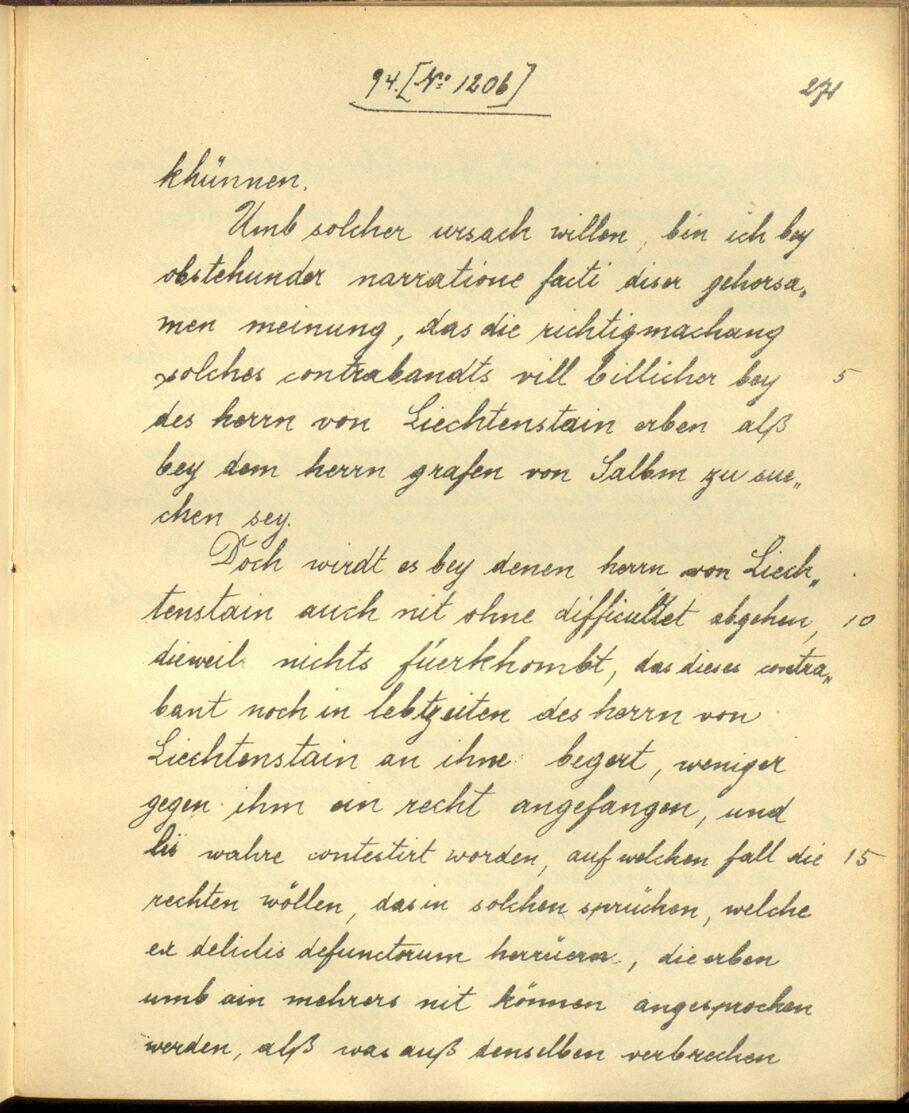 94. [No 1206]
271
khünnen.
Umb solcher ursach willen, bin ich bey
obstehunder narratione facti diser gehorsa„
men meinung, das die richtigmachang
solches contrabandts vill billicher bey 5
des herrn von Liechtenstain erben alß
bey dem herrn grafen von Salbm zu sue„
chen sey.
Doch wirdt es bey denen herrn von Liech„
tenstain auch nit ohne difficultet abgehen, 10
dieweil nichts füerkhombt, das dieses contra„
bant noch in lebtzeiten des herrn von
Liechtenstain an ihne begert, weniger
gegen ihm ein recht angefangen, und
lis wahre contestirt worden, auf welchen fall die 15
rechten wöllen, das in solchen sprüchen, welche
ex delictis defunctorum herrüern, die erben
umb ain mehrers nit können angesprochen
werden, alß was auß denselben verbrechen